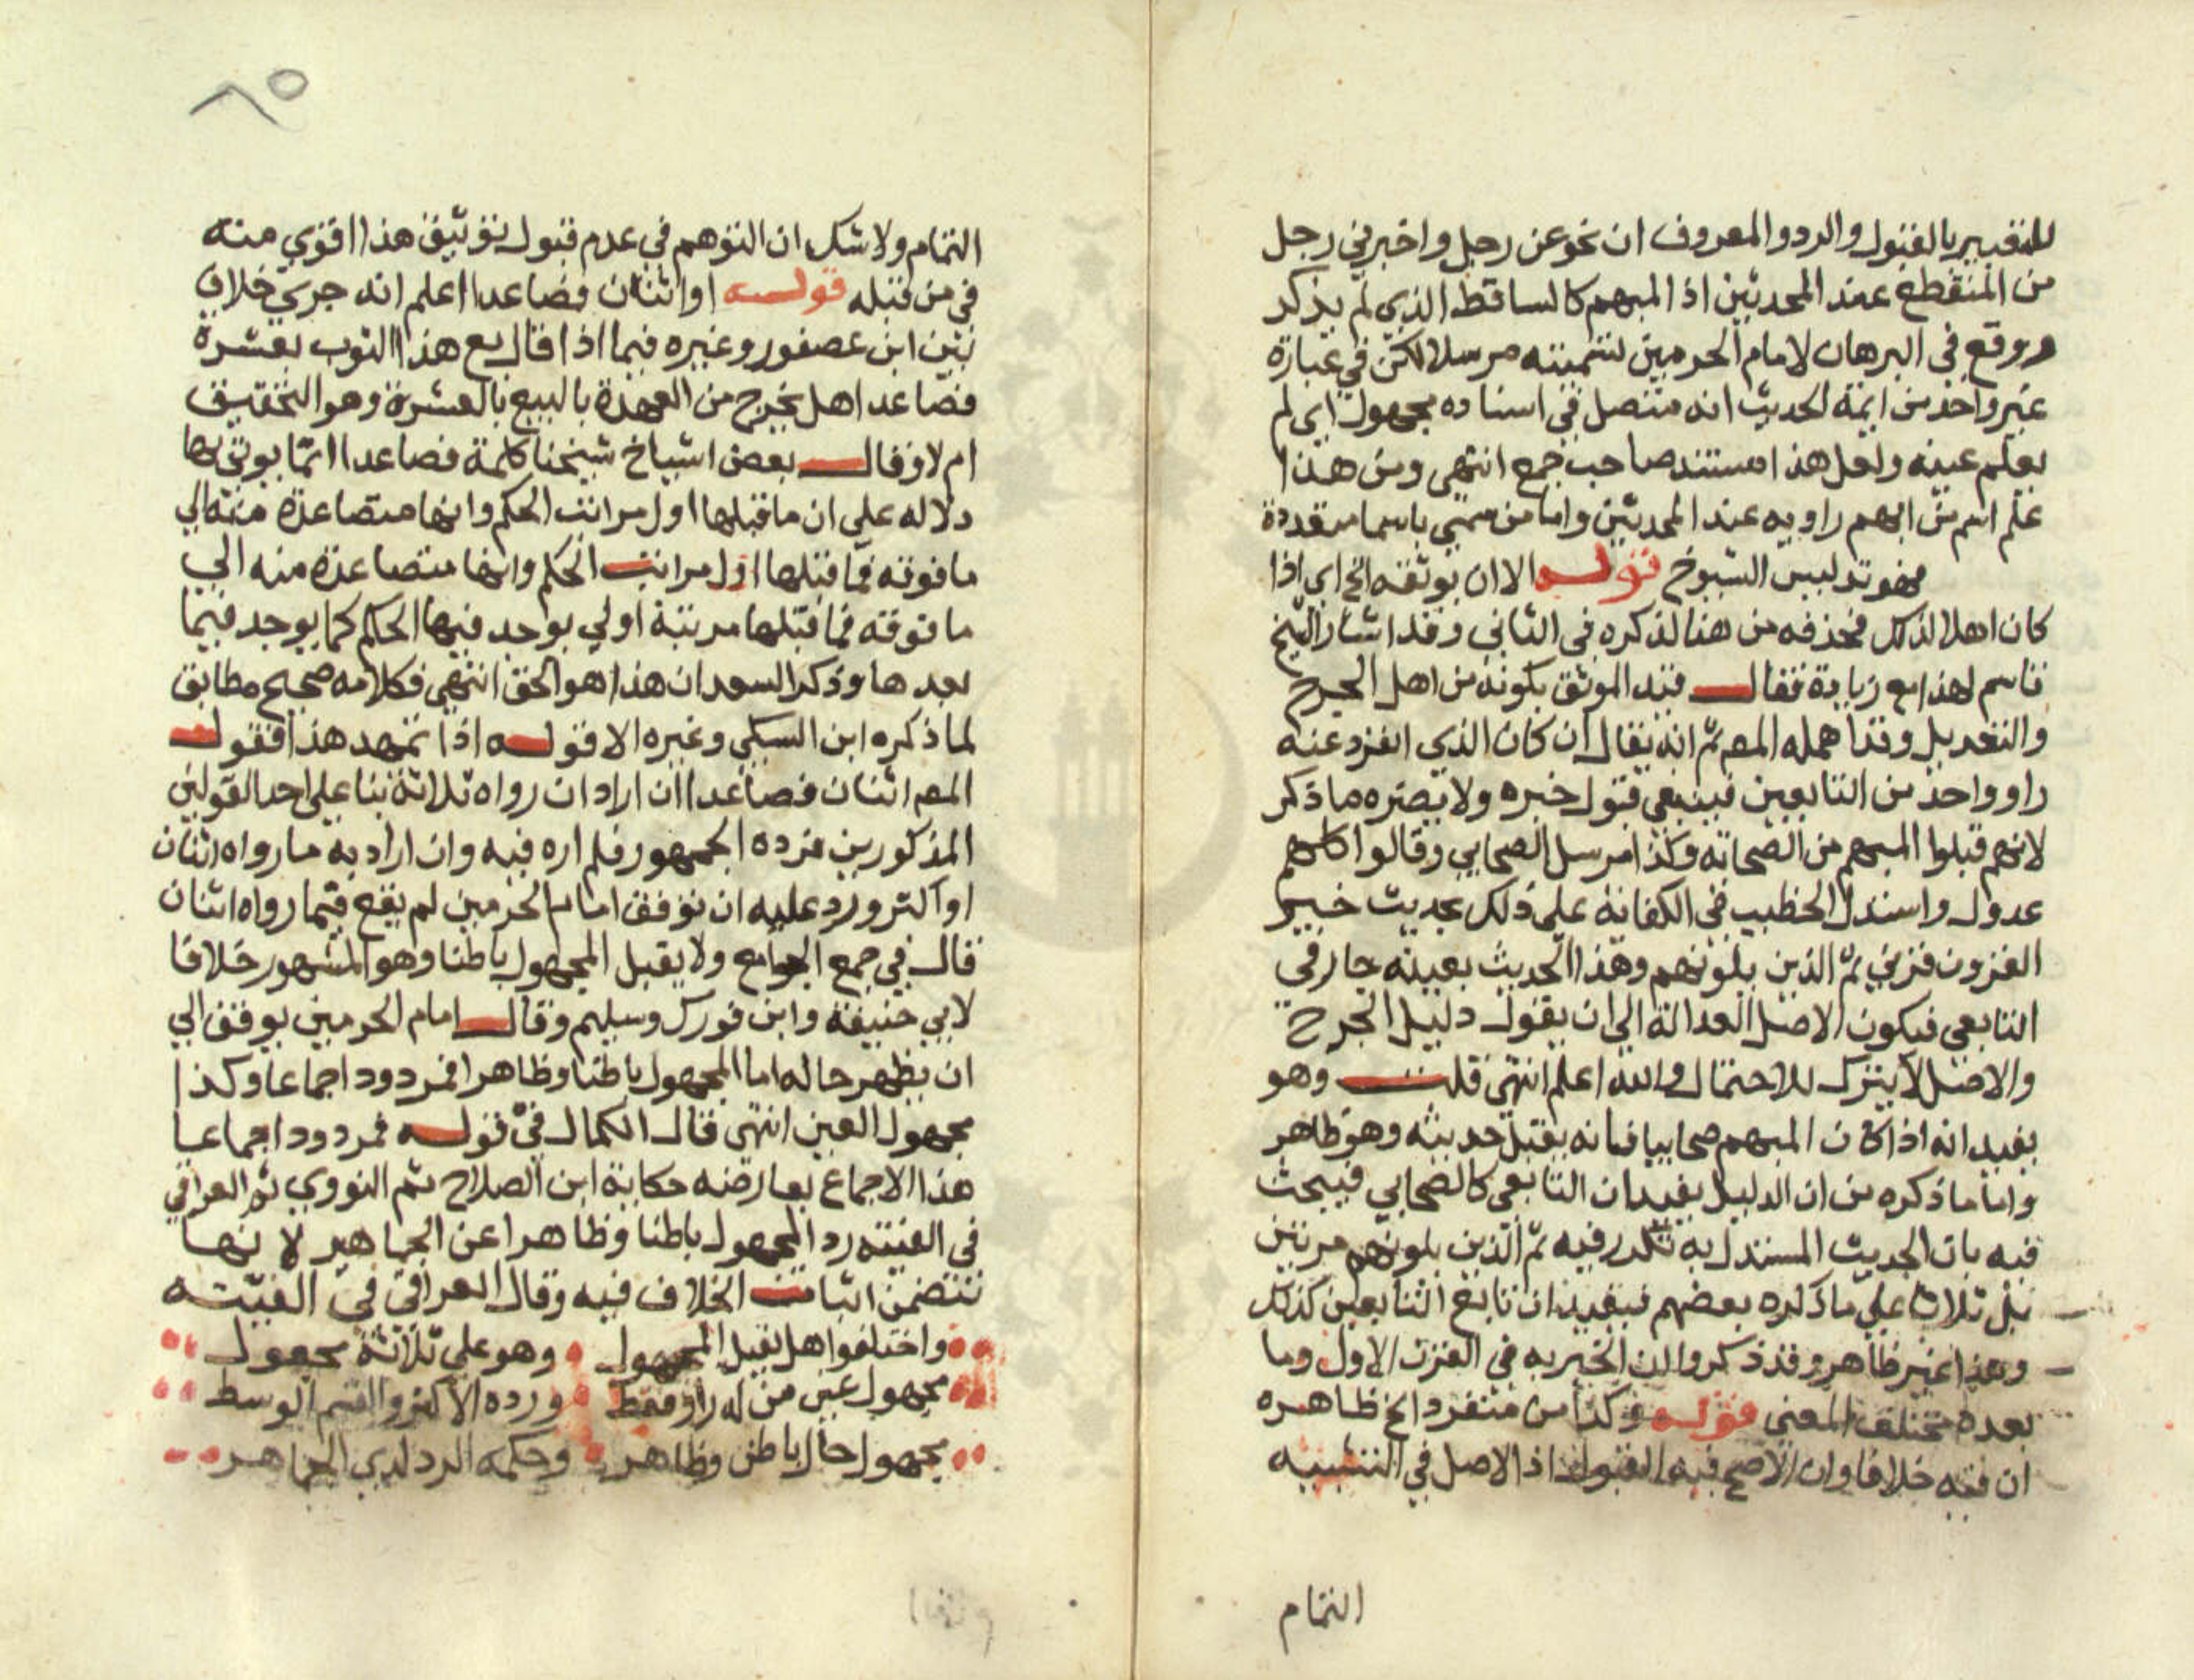 للتقييد بالقبول والرد والمعروف ان نحو عن رجل واخبرني رجل
من المنقطع عند المحدثين اذ المبهم كالساقط الذي لم يذكر
ووقع في البرهان لامام الحرمين تسميته مرسلا لكن في عبارة
غير واحد من ايمة الحديث انه متصل في اسناده مجهول اي لم
يعلم عينه ولعل هذا مستند صاحب جمع انتهى ومن هذا
علم اسم من ابهم راويه عند المحدثين واما من سمي باسما متعددة
فهو تدليس الشيوخ قوله الا ان يوثقه الخ اي اذا
كان اهلا لذلك فحذفه من هنا لذكره في الثاني وقد اشار الشيخ
قاسم لهذا مع زيادة فقال قيد الموثق بكونه من اهل الجرح
والتعديل وقد اهمله المص ثم انه يقال ان كان الذي انفرد عنه
راو واحد من التابعين فينبغي قبول خبره ولا يضره ما ذكر
لانهم قبلوا المبهم من الصحابة وكذا مرسل الصحابي وقالوا كلهم
عدول واستدل الخطيب في الكفاية على ذلك بحديث خير
القرون قرني ثم الذين يلونهم وهذا الحديث بعينه جار في
التابعي فيكون الاصل العدالة الى ان يقول دليل الجرح
والاصل لا يترك للاحتمال والله اعلم انتهى قلت وهو
يفيد انه اذا كان المبهم صحابيا فانه يقبل حديثه وهو ظاهر
واما ما ذكره من ان الدليل يفيد ان التابعي كالصحابي فيبحث
فيه بان الحديث المستدل به تكرر فيه ثم الذين يلونهم مرتين
بل ثلاثا على ما ذكره بعضهم فيفيد ان تابع التابعين كذلك
وهذا غير ظاهر وقد ذكروا ان الخيرية في القرن الاول وما
بعده مختلف المعنى قوله وكذا من متفرد الخ ظاهره
ان فيه خلافا وان الاصح فيه القبول اذ الاصل في التشبيه
التمام
٨٥
التمام ولا شك ان التوهم في عدم قبول توثيق هذا اقوي منه
في من قبله قوله او اثنان فصاعدا اعلم انه جري خلاف
بين ابن عصفور وغيره فيما اذا قال بع هذا الثوب بعشرة
فصاعدا هل يخرج من العهدة بالبيع بالعشرة وهو التحقيق
ام لا وقال بعض اشياخ شيخنا كلمة فصاعدا انما يوتى بها
دلاله على ان ما قبلها اول مراتب الحكم وانها متصاعدة منه الي
ما فوقه فما قبلها اول مراتب الحكم وانها متصاعدة منه الي
ما فوقه فما قبلها مرتبة اولي يوجد فيها الحكم كما يوجد فيما
بعدها وذكر السعد ان هذا هو الحق انتهى فكلامه صحيح مطابق
لما ذكره ابن السبكي وغيره الا قوله اذا تمهد هذا فقول
المص اثنان فصاعدا ان اراد ان رواه ثلاثة بنا على احد القولين
المذكورين فرده الجمهور فلم اره فيه وان اراد به ما رواه اثنان
او اكثر ورد عليه ان توقف امام الحرمين لم يقع فيما رواه اثنان
قال في جمع الجوامع ولا يقبل المجهول باطنا وهو المشهور خلافا
لابي حنيفة وابن فورك وسليم وقال امام الحرمين يوقف الي
ان يظهر حاله اما المجهول باطنا وظاهرا فمردود اجماعا وكذا
مجهول العين انتهى قال الكمال في قوله فمردود اجماعا
هذا الاجماع يعارضه حكاية ابن الصلاح ثم النووي ثم العراقي
في الفيته رد المجهول باطنا وظاهرا عن الجماهير لا نها
تتضمن اثبات الخلاف فيه وقال العراقي في الفيته
واختلفوا هل يقبل المجهول وهو على ثلاثة مجعول
مجهول عين من له راو فقط ورده الاكثر والقسم الوسط
مجهول حال باطن وظاهر وحكمه الرد لدي الجماهر